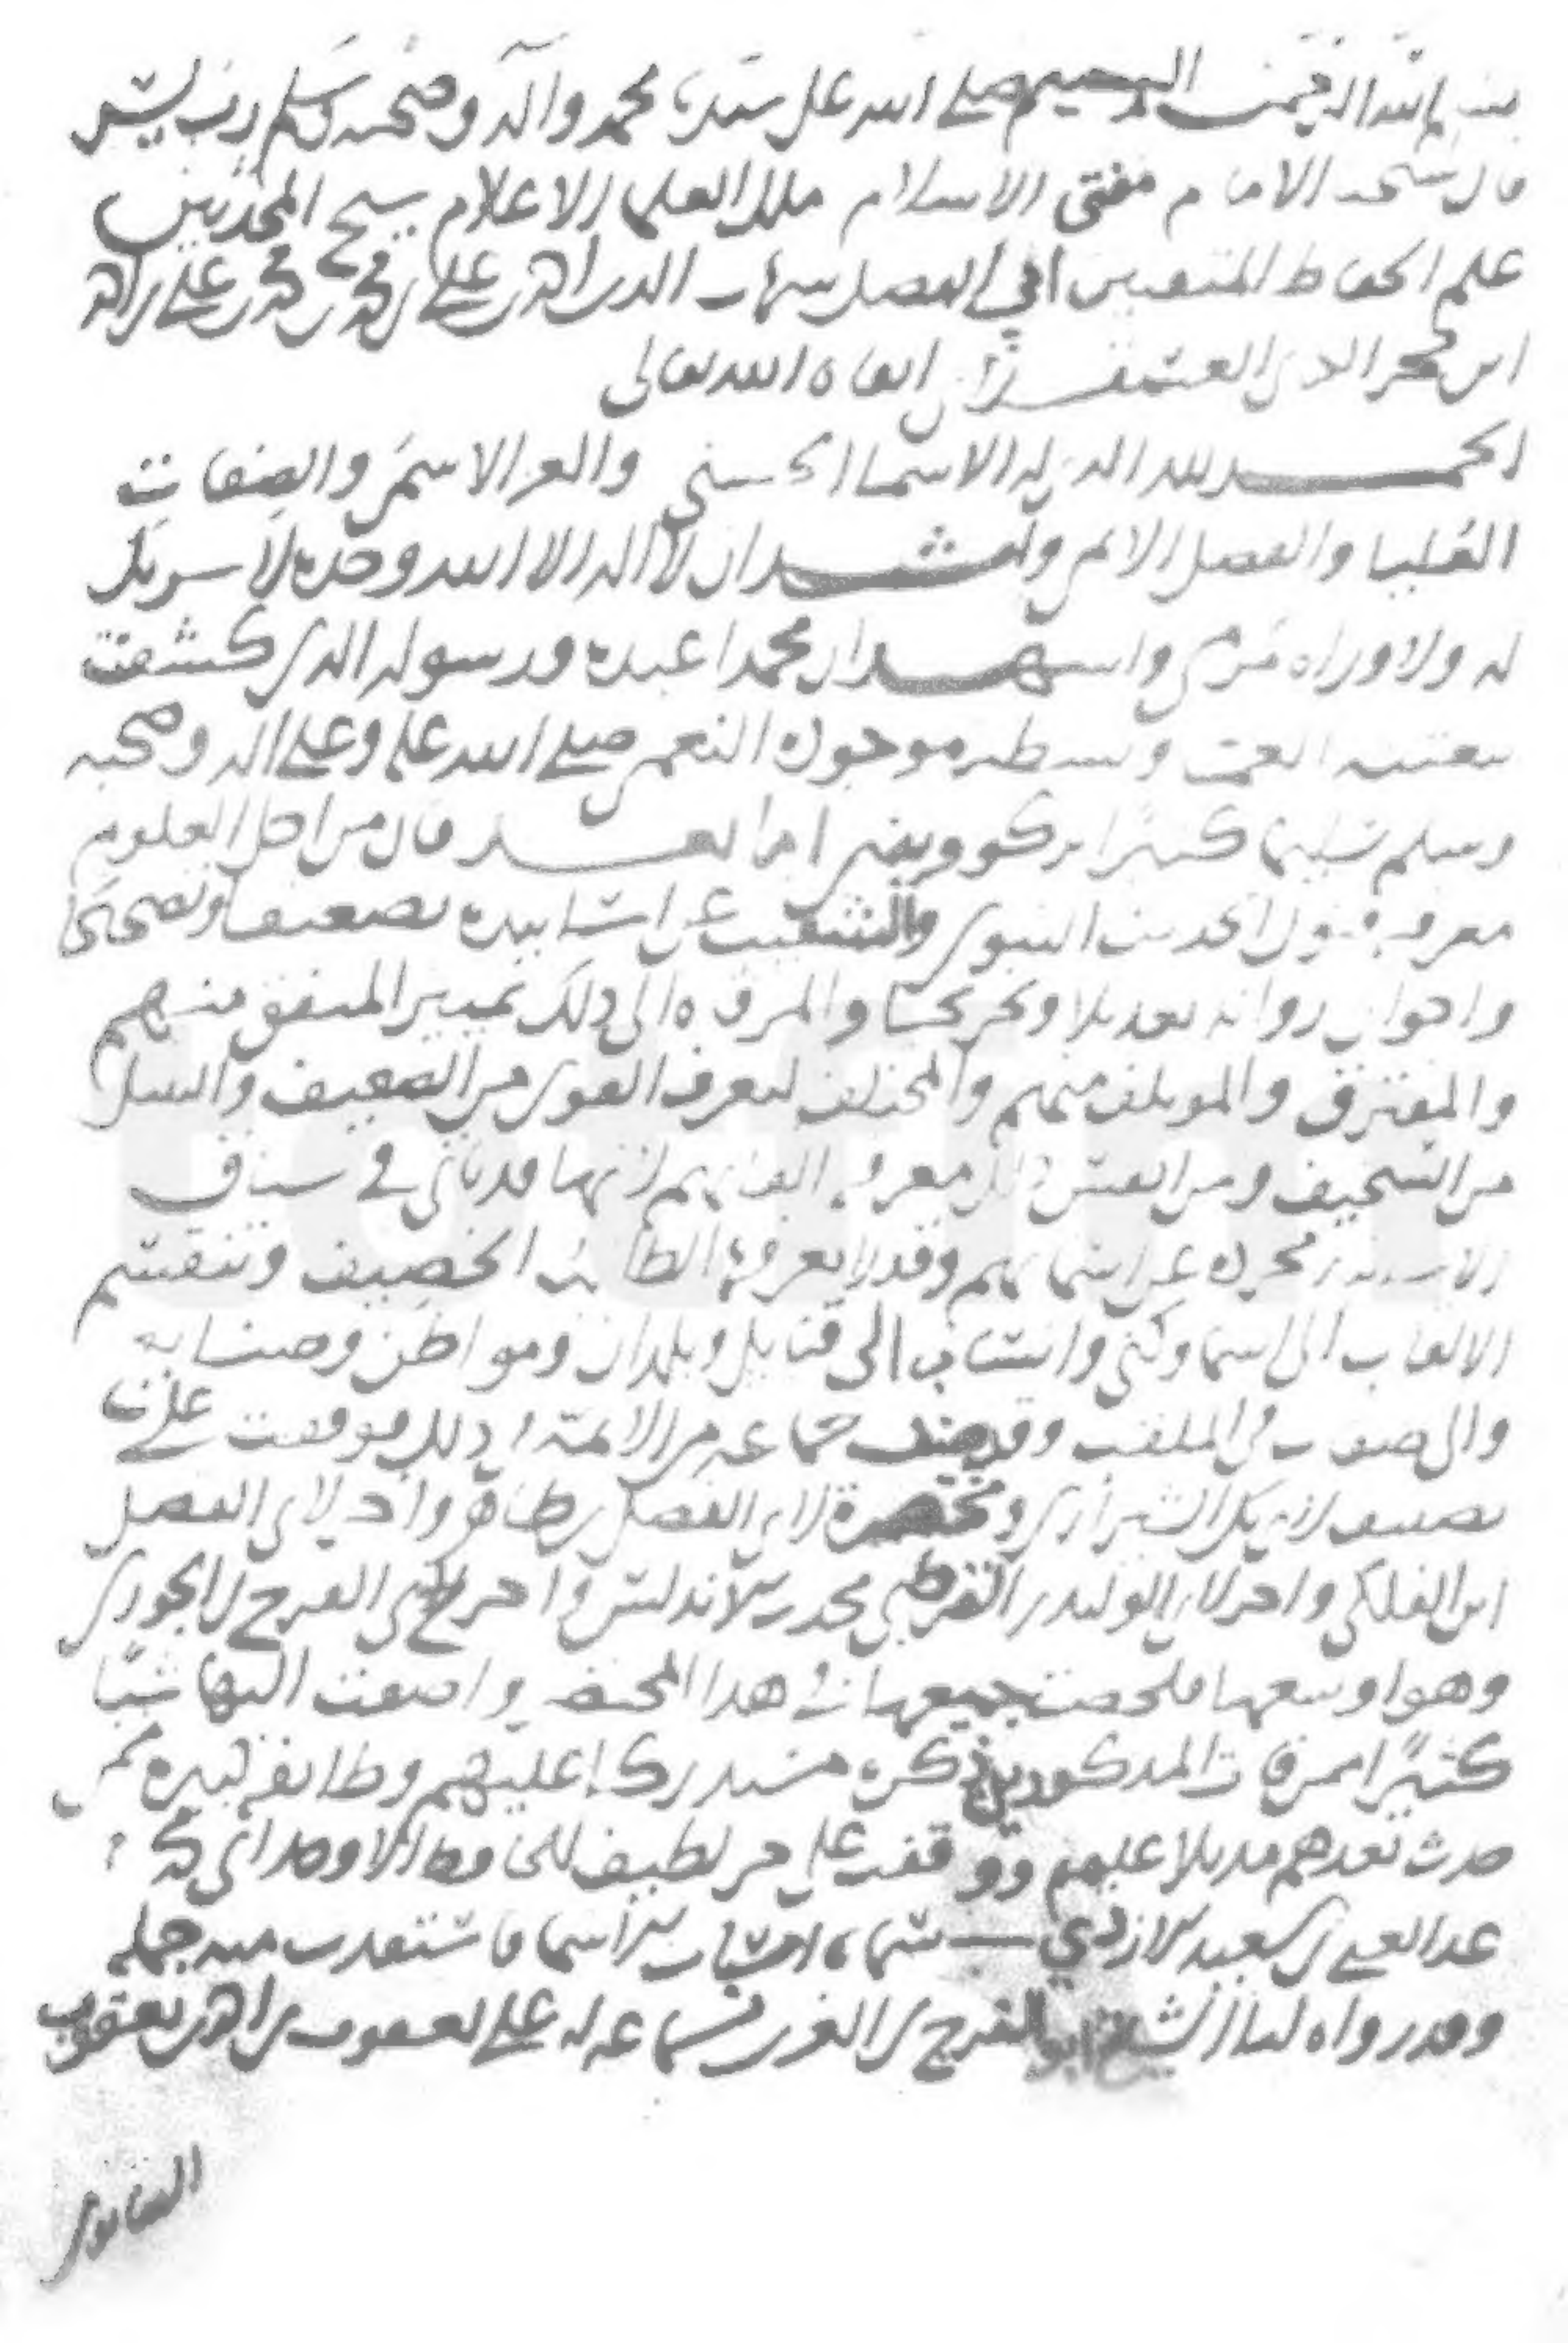 بسم الله الرحمن الرحيم صلى الله على سيدنا محمد وآله وصحبه وسلم رب يسر
قال شيخنا الامام مفتي الاسلام ملك العلما الاعلام شيخ المحدثين
علم الحفاظ المتقنين ابي الفضل شهاب الدين احمد بن علي بن محمد بن محمد بن علي بن احمد
ابن حجر الدين العسقلاني ابقاه الله تعالى
الحمد لله الذي له الاسما الحسنى والعز الاسمى والصفات
العليا والفضل الاتم واشهد ان لا اله الا الله وحده لا شريك
له ولا وراه مرمى واشهد ان محمدا عبده ورسوله الذي كشفت
ببعثته الغمة وبسط موجوده النعم صلى الله عليه وعلى اله وصحبه
وسلم تسليما كثيرا يزكو وينمى اما بعد فان من اجل العلوم
معرفة فنون الحديث النبوي والتنقيب عن اسانيده تضعيفا وتصحيحا
واحوال رواته تعديلا وتجريحا والمرقاه الى ذلك تمييز المتفق منهم
والمفترق والموتلف منهم والمختلف ليعرف القوي من الضعيف والنبيل
من السخيف ومن انفس ذلك معرفة القابهم لانها قد تاتي في سياق
الاسانيد مجرده عن اسمايهم وقد لا يعرفها الطالب الحصيف وتنقسم
الالقاب الى اسما وكنى وانساب الى قبايل وبلدان ومواطن وصنايع
والى صفات في الملقب وقد صنف جماعه من الائمة في ذلك فوقفت على
تصنيف لابي بكر الشيرازي ومختصرة لابي الفضل بن طاهر واخر لابي الفضل
ابن الفلكي واخر لابي الوليد بن الفرضي محدث الاندلس واخر لابي الفرج بن الجوزي
وهو اوسعها فلخصت جميعها في هذا المختصر واضفت اليها شيئا
كثيرا ممن فات المذكورين ذكره مستدركا عليهم وطايفة كبيره ممن
حدث بعدهم مذيلا عليهم ووقفت على جز لطيف للحافظ الاوحد ابي محمد
عبد الغني بن سعيد الازدي سماه اسباب الاسما فاستفدت منه جمله
وقد رواه لنا الشيخ ابو الفرج بن الغزي بسماعه له على يعقوب بن احمد بن يعقوب